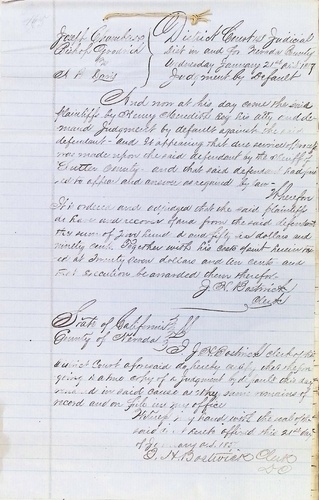 District Court Judicial
District in and for Nevada County
Bishop Goodrich
vs
Wednesday January 21st AD 18
Davis
Judgment by Default
And now at this day come the said
Plaintiffs by Henry Meredith Esq his atty and de
mand Judgment by default against the said
defendant and it appearing that due service of process
was made upon the said defendant by the Sheriff of
Sutter County and that said defendant had
to appear and answer as required by law
Wherefore
It is ordered and adjudged that the said plaintiffs
do have and recover of and from the said defendant
the sum of hundred and fifty six dollars and
ninety cents Together with his costs of suit herein tax
ed at Twenty seven dollars and ten cents and
that execution be awarded them therefor
Clerk
State of California
County of Nevada
I clerk of the
District Court aforesaid do hereby certify that the fore
going is a true copy of a judgment by default this day
in said cause as the same remains of
record and on file in my office
Witness my hand with the seal of the
said Court affixed this 21st day
of January AD 18
Bostwick Clerk